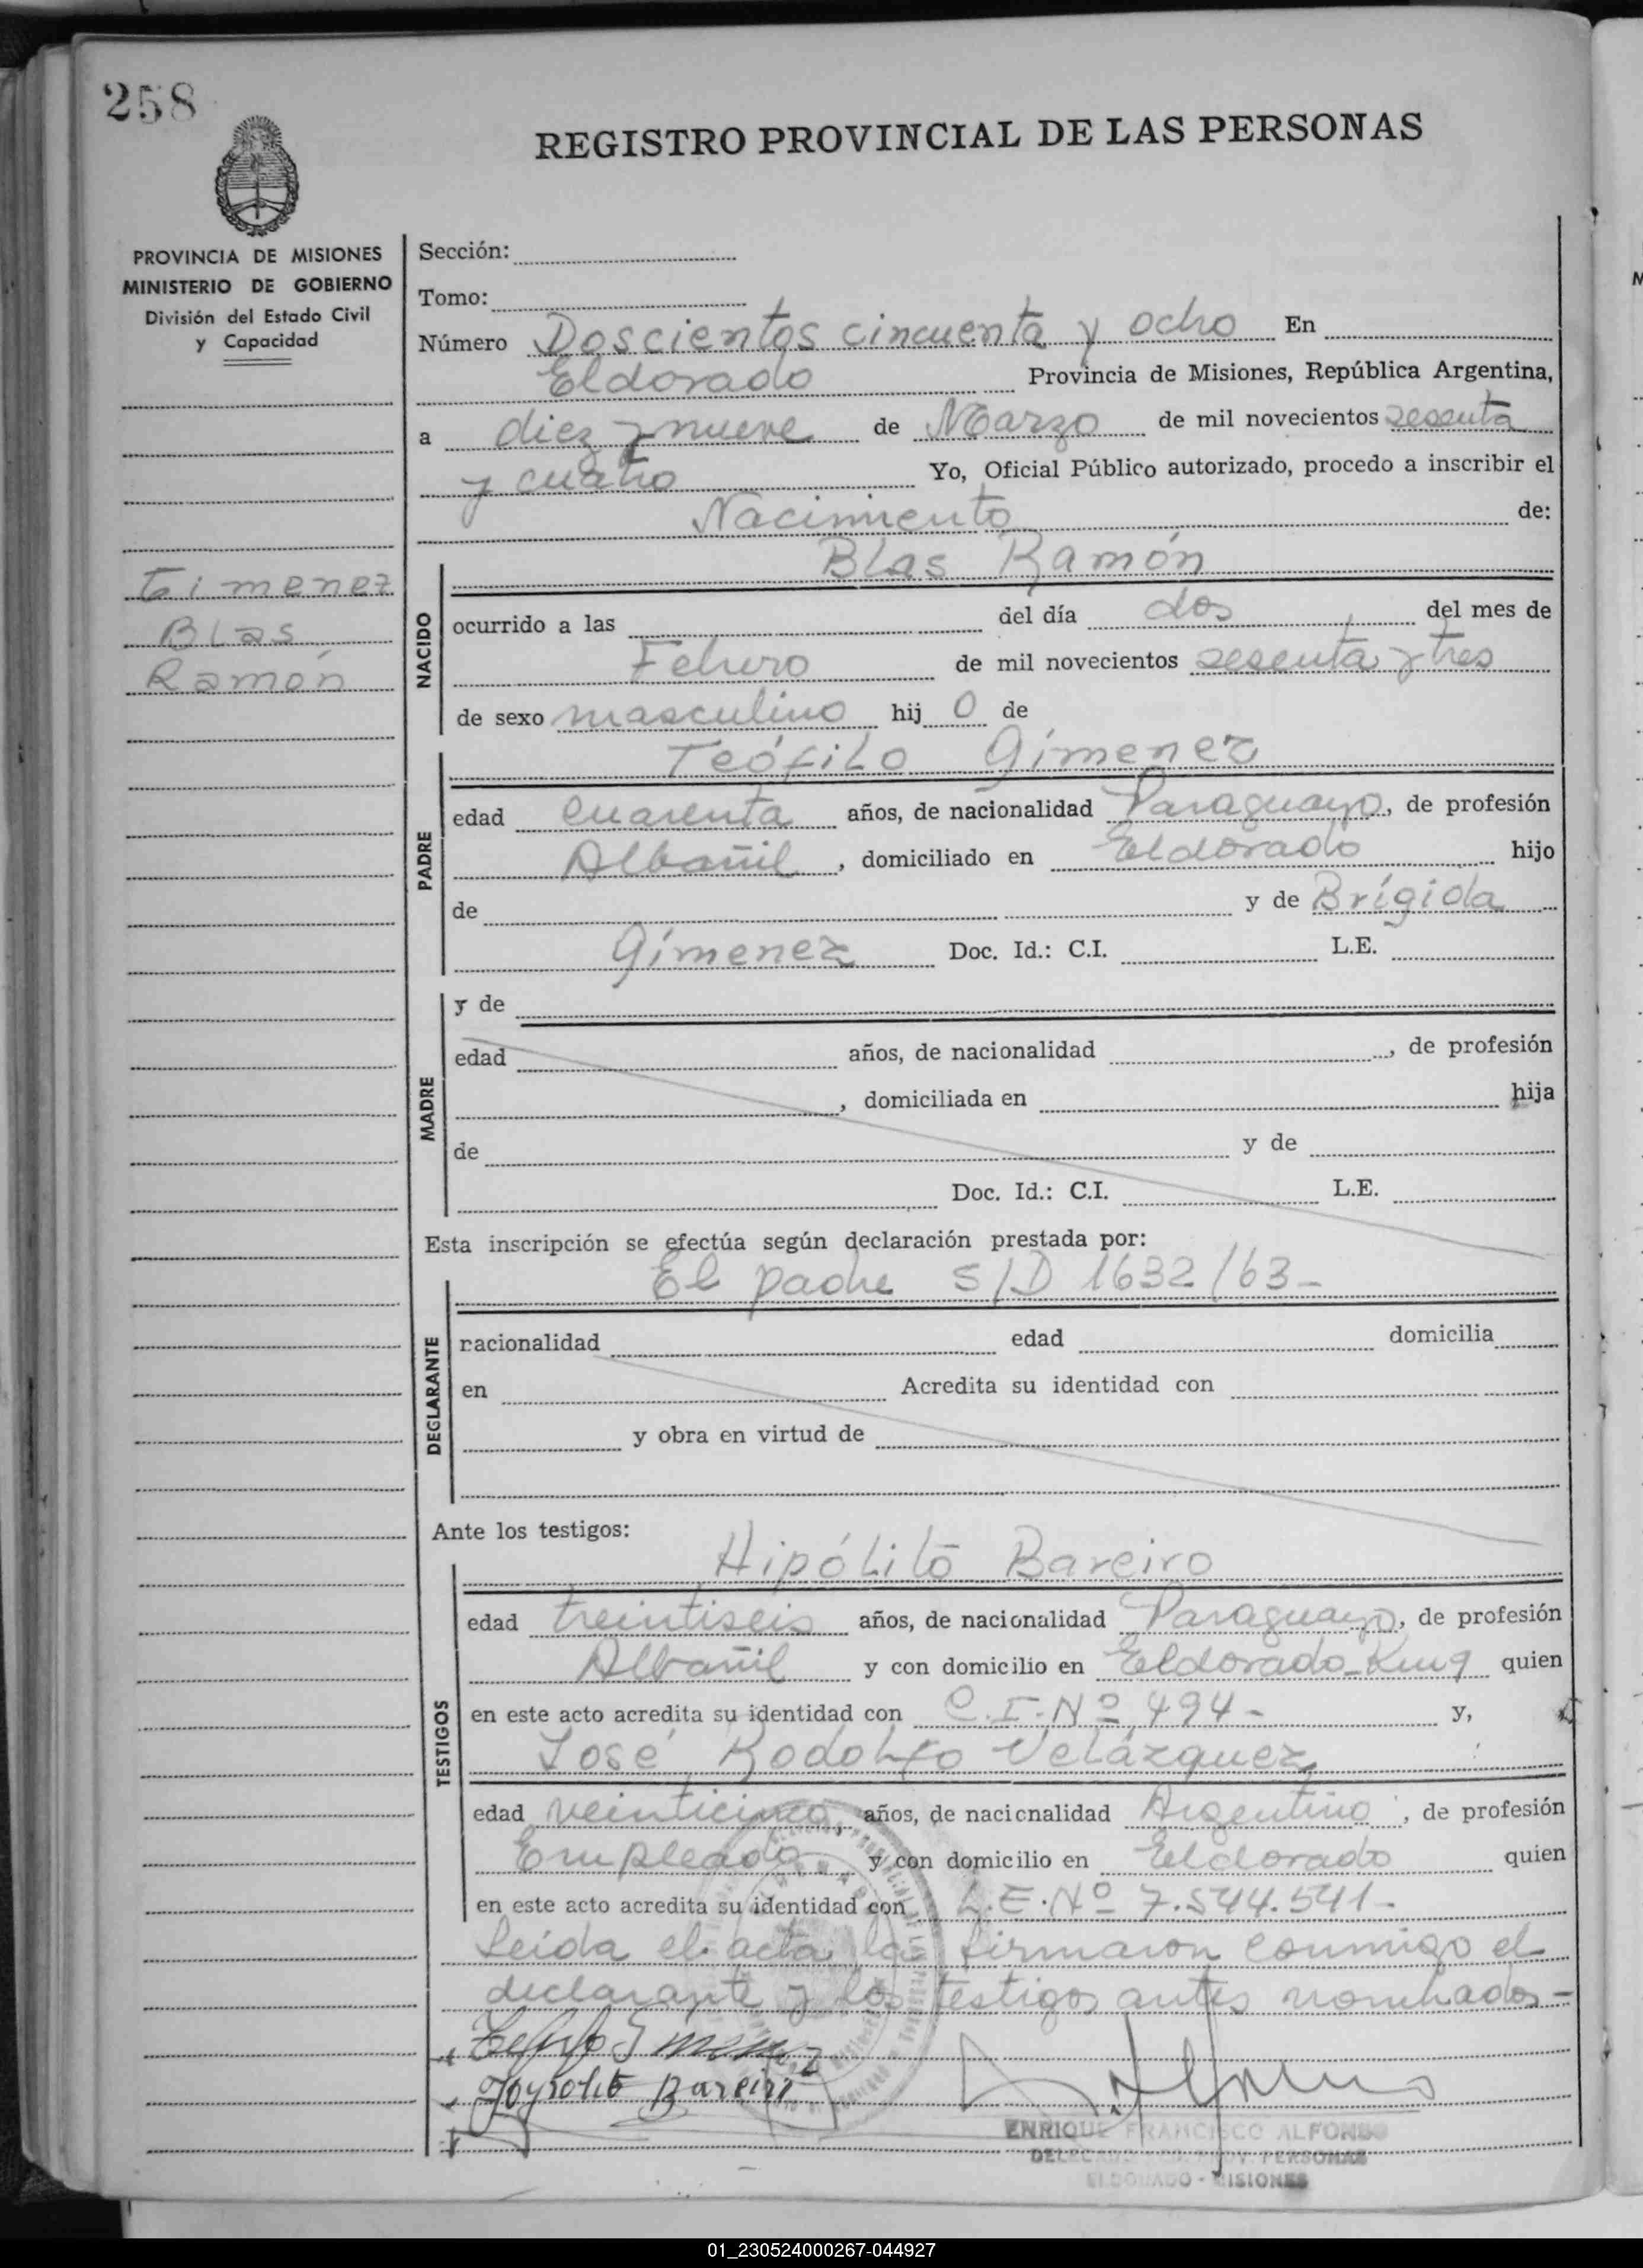 258
REGISTRO PROVINCIAL DE LAS PERSONAS
PROVINCIA DE MISIONES
MINISTERIO DE GOBIERNO
División del Estado Civil
y Capacidad
Gimenez
Blas
Ramón
Sección:
Tomo:
Número Doscientos cincuenta y ocho En
Eldorado Provincia de Misiones, República Argentina,
a diez y nueve de Marzo de mil novecientos sesenta
y cuatro Yo, Oficial Público autorizado, procedo a inscribir el
Nacimiento de:
NACIDO
Blas Ramón
ocurrido a las del día dos del mes de
Febrero de mil novecientos sesenta y tres
de sexo masculino hij o de
PADRE
Teófilo Gímenez
edad cuarenta años, de nacionalidad Paraguayo, de profesión
Albañil, domiciliado en Eldorado hijo
de y de Brígida
Gímenez Doc. Id.: C.I. L.E.
MADRE
y de
edad años, de nacionalidad , de profesión
, domiciliada en hija
de y de
Doc. Id.: C.I. L.E.
Esta inscripción se efectúa según declaración prestada por:
DEGLARANTE
El padre S/D 1632/63-
nacionalidad edad domicilia
en Acredita su identidad con
y obra en virtud de
Ante los testigos:
TESTIGOS
Hipólito Bareiro
edad treintiseis años, de nacionalidad Paraguayo, de profesión
Albañil y con domicilio en Eldorado-King quien
en este acto acredita su identidad con C.I. Nº 494- y,
José Rodolfo Velázquez
edad veinticinco, años, de nacionalidad Argentino, de profesión
Empleado y con domicilio en Eldorado quien
en este acto acredita su identidad con L.E. Nº 7.544.541-
Leída el acta la firmaron conmigo el
declarante y los testigos antes nombrados-
Bareiro
ENRIQUE FRANCISCO ALFONSO
DELEGADO PROV. PERSONAS
ELDORADO - MISIONES
01_230524000267-044927